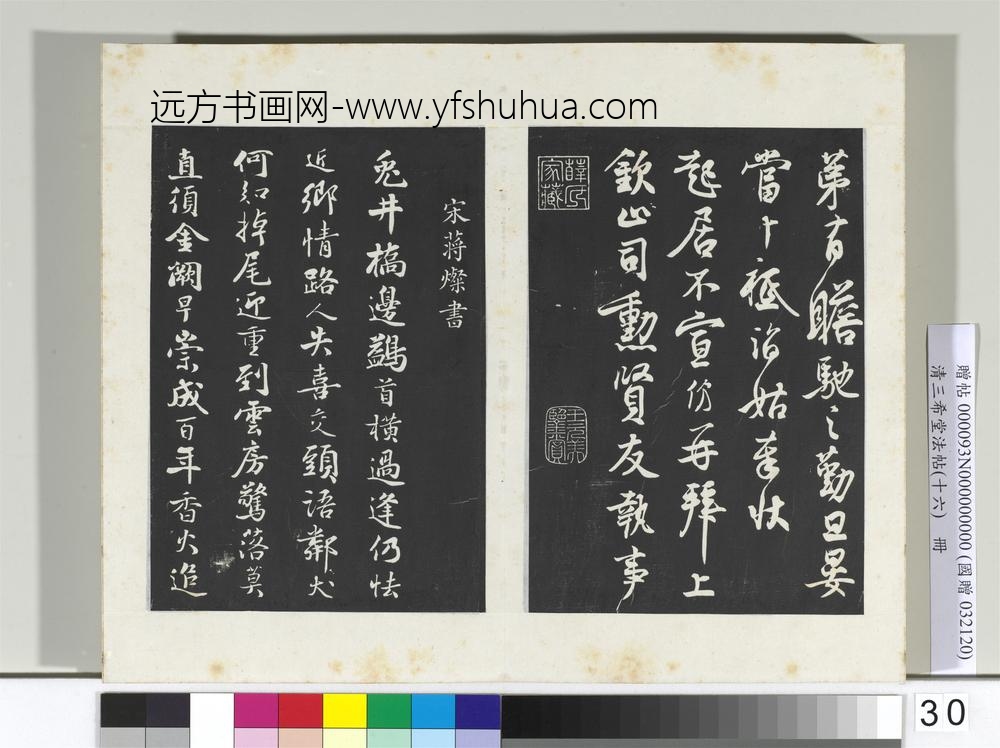 远方书画网-www.yfshuhua.com
第有瞻馳之勤日晏
當十袛詣姑奉狀
起居不宣仿再拜上
欽止司勳賢友執事
薛氏家藏
宋蔣燦書
兎井橋邊鷁首橫過逢仍怯
近鄉情路人失喜交頭語鄰犬
何知掉尾迎重到雲房驚落莫
直須金闕早崇成百年香火追
贈帖 000093N000000000 (國贈 032120)
清三希堂法帖(十六) 冊
30